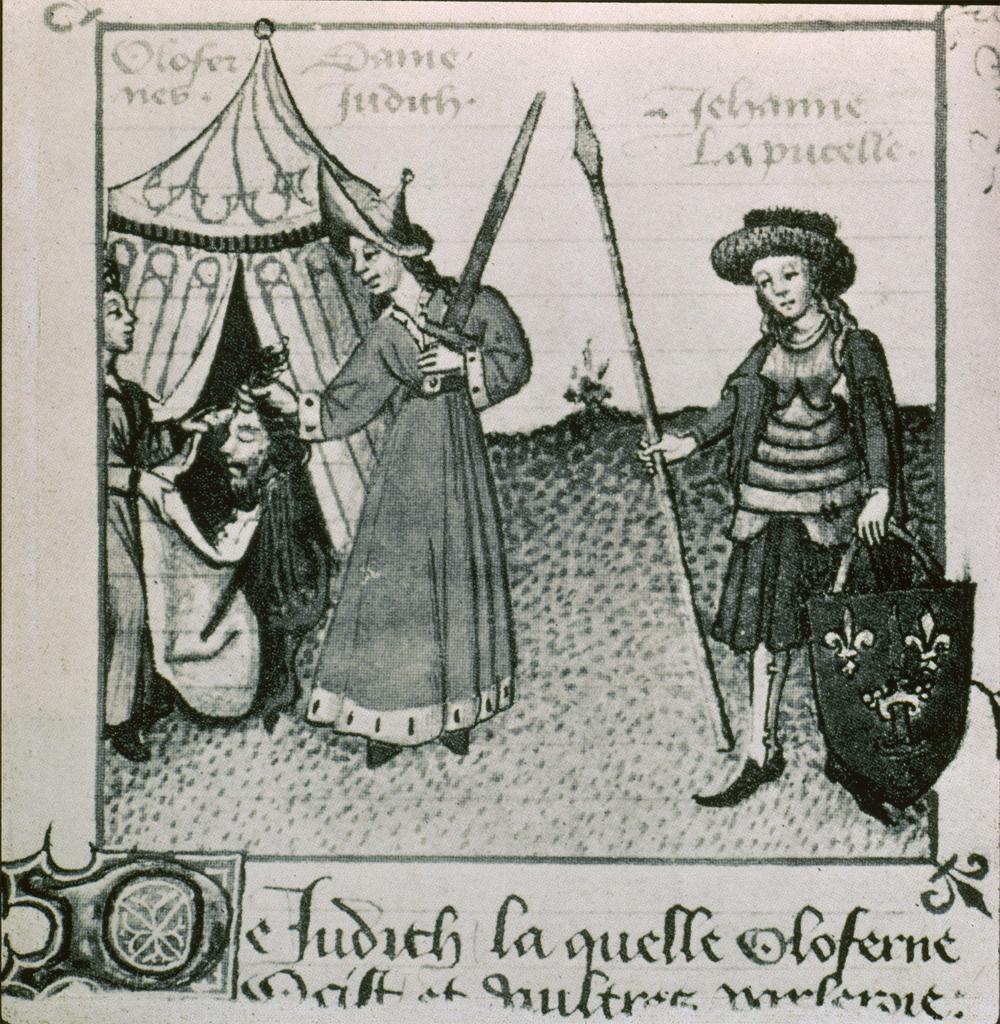 Olofer
nes.
Dame
Judith.
Jehanne
La pucelle.
De Judith la quelle Oloferne
Ocist et aultres